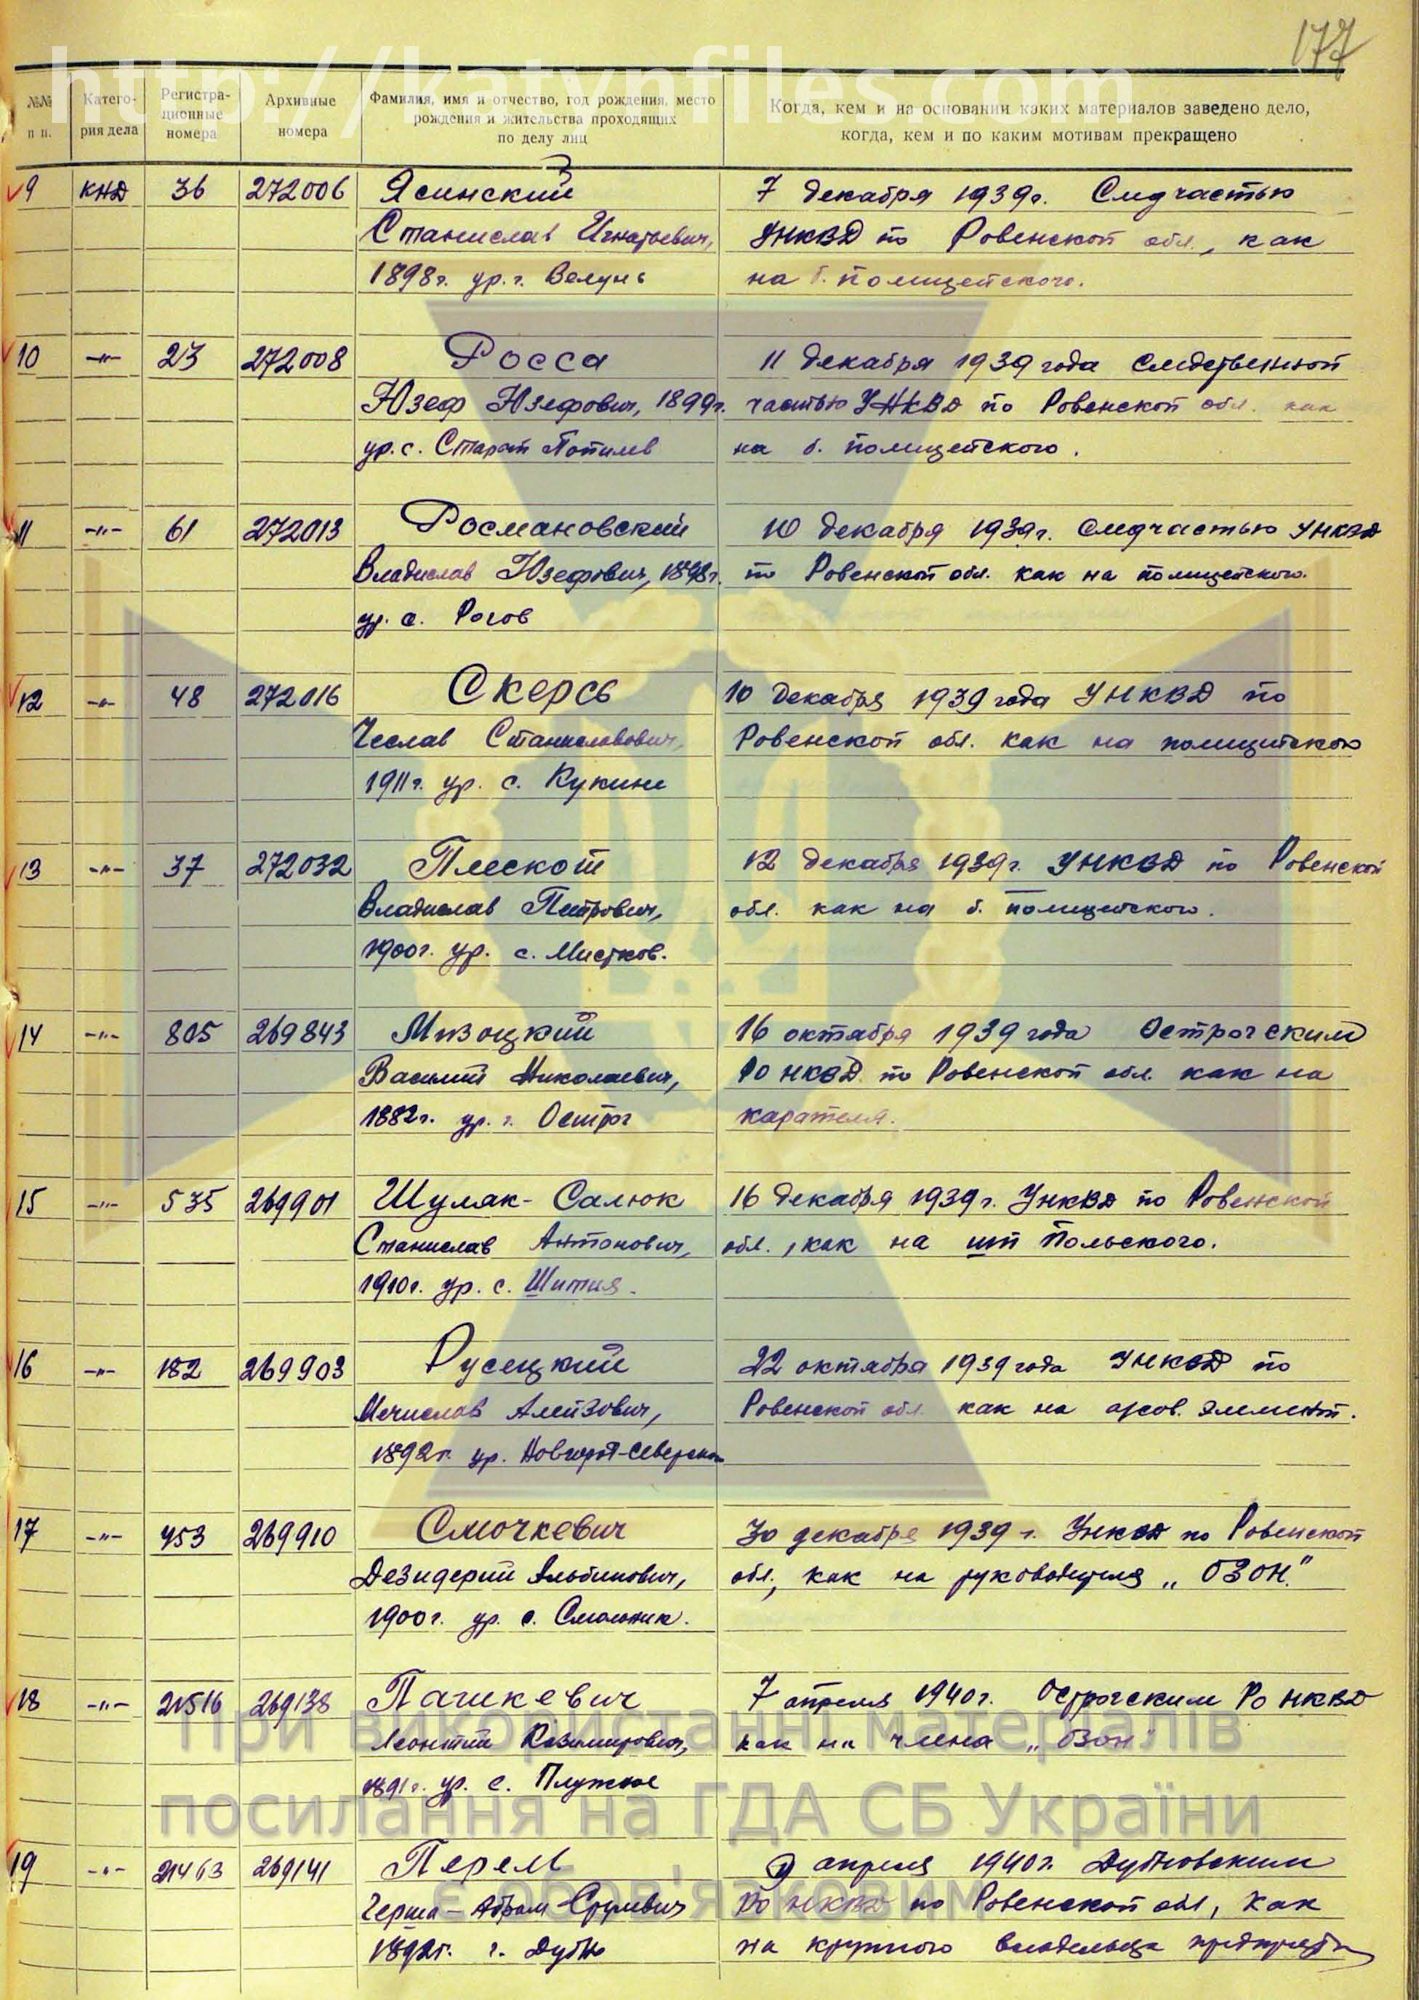 177
http://katynfiles.com
№№ п п.
Катего- рия дела
Регистра- ционные номера
Архивные номера
Фамилия, имя и отчество, год рождения, место рождения и жительства проходящих по делу лиц
Когда, кем и на основании каких материалов заведено дело, когда, кем и по каким мотивам прекращено
9 КНД 36 272006 Ясинский 7 декабря 1939г. Следчастью
Станислав Игнатьевич, УНКВД по Ровенской обл., как
1898г. ур. г. Велунь на б. полицейского.
10 -"- 23 272008 Росса 11 декабря 1939 года следственной
Юзеф Юзефович, 1899г. частью УНКВД по Ровенской обл. как
ур. с. Старый Попилев на б. полицейского.
11 -"- 61 272013 Росмановский 10 декабря 1939г. следчастью УНКВД
Владислав Юзефович, 1898г. по Ровенской обл. как на полицейского.
ур. с. Рогов
12 -"- 48 272016 Скерсь 10 декабря 1939 года УНКВД по
Чеслав Станиславович, Ровенской обл. как на полицейского
1911г. ур. с. Кукине
13 -"- 37 272032 Плескот 12 декабря 1939г. УНКВД по Ровенской
Владислав Петрович, обл. как на б. полицейского.
1900г. ур. с. Мистков.
14 -"- 805 269843 Мизоцкий 16 октября 1939 года Острогским
Василий Николаевич, РО НКВД по Ровенской обл. как на
1882г. ур. г. Острог карателя.
15 -"- 535 269901 Шуляк-Салюк 16 декабря 1939г. УНКВД по Ровенской
Станислав Антонович, обл., как на Польского.
1910г. ур. с. Шития.
16 -"- 182 269903 Русецкий 22 октября 1939 года УНКВД по
Мечислав Алейзович, Ровенской обл. как на элемент.
1892г. ур. Новгород-Северский
17 -"- 453 269910 Смочкевич 30 декабря 1939 г. УНКВД по Ровенской
Дезидерий Альбинович, обл., как на руководителя „ОЗОН."
1900г. ур. с. Смольник.
18 -"- 21516 269138 Пашкевич 7 апреля 1940г. Острогским РО НКВД
Леонтий Казимирович, как на члена „ОЗОН".
1891г. ур. с. Плужное
19 -"- 21463 269141 Перель 9 апреля 1940г. Дубновским
Герша-Абрам Срулевич РО НКВД по Ровенской обл, как
1892г. г. Дубно на крупного владельца
При використанні матеріалів
посилання на ГДА СБ України
є обов'язковим